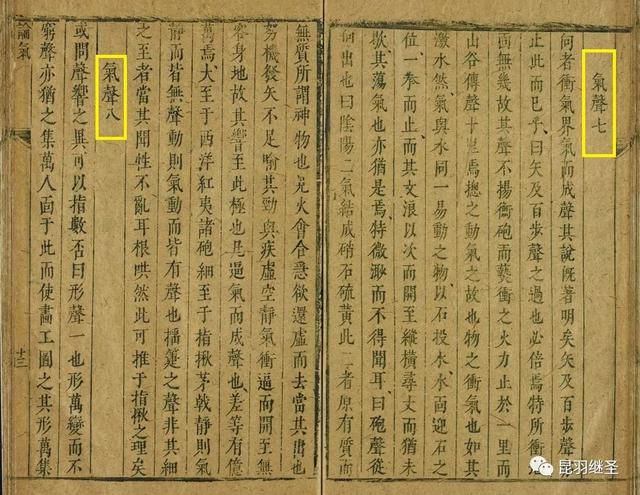 氣聲七
問者衝氣界氣而成聲其說既著明矣矢及百步聲
止此而已乎曰矢及百步聲之過也必倍焉特所衝
面無幾故其聲不揚衝砲而爇衝之火力止於一里而
山谷傳聲十里焉揔之動氣之故也物之衝氣也如其
激水然氣與水同一易動之物以石投水水面迎石之
位一拳而止而其文浪以次而開至縱橫尋丈而猶未
歇其蕩氣也亦猶是焉特微渺而不得聞耳曰砲聲從
何出也曰陰陽二氣結成硝石硫黃此二者原有質而
無質所謂神物也見火會合急欲還虛而去當其出也
努機發矢不足喻其勁與疾虛空靜氣衝逼而開至
穿身地故其響至此極也是逼氣而成聲也差等有億
萬焉大至于西洋紅夷諸砲細至于指揪茅戟靜則氣
靜而皆無聲動則氣動而皆有聲也之聲非其細
之至者當其聞性不亂耳根哄然此可推于指揪之理矣
氣聲八
或問聲響之異可以指數否曰形聲一也形萬變而不
窮聲亦猶之集萬人面于此而使畫工圖之其形萬集
論氣
十三
昆羽继圣